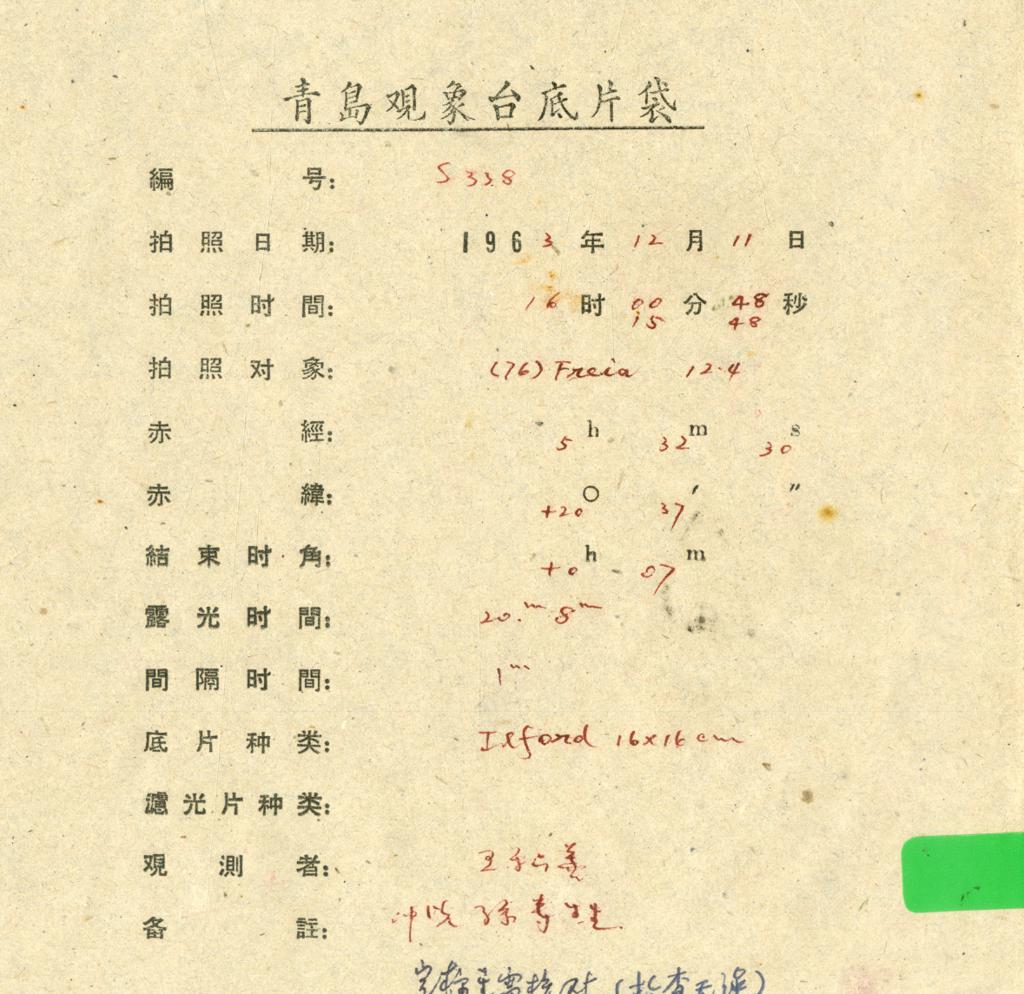 青島观象台底片袋
編号: S 338
拍照日期: 1963年12月11日
拍照时間: 16时00分48秒
15 48
拍照对象: (76) Freia 12.4
赤經: 5h 32m 30s
赤緯: +20° 37′ ″
結束时角: +0h 07m
露光时間: 20.m 8m
間隔时間: 1m
底片种类: Ilford 16x16cm
濾光片种类:
观測者: 王
备註: 冲洗 孙寿